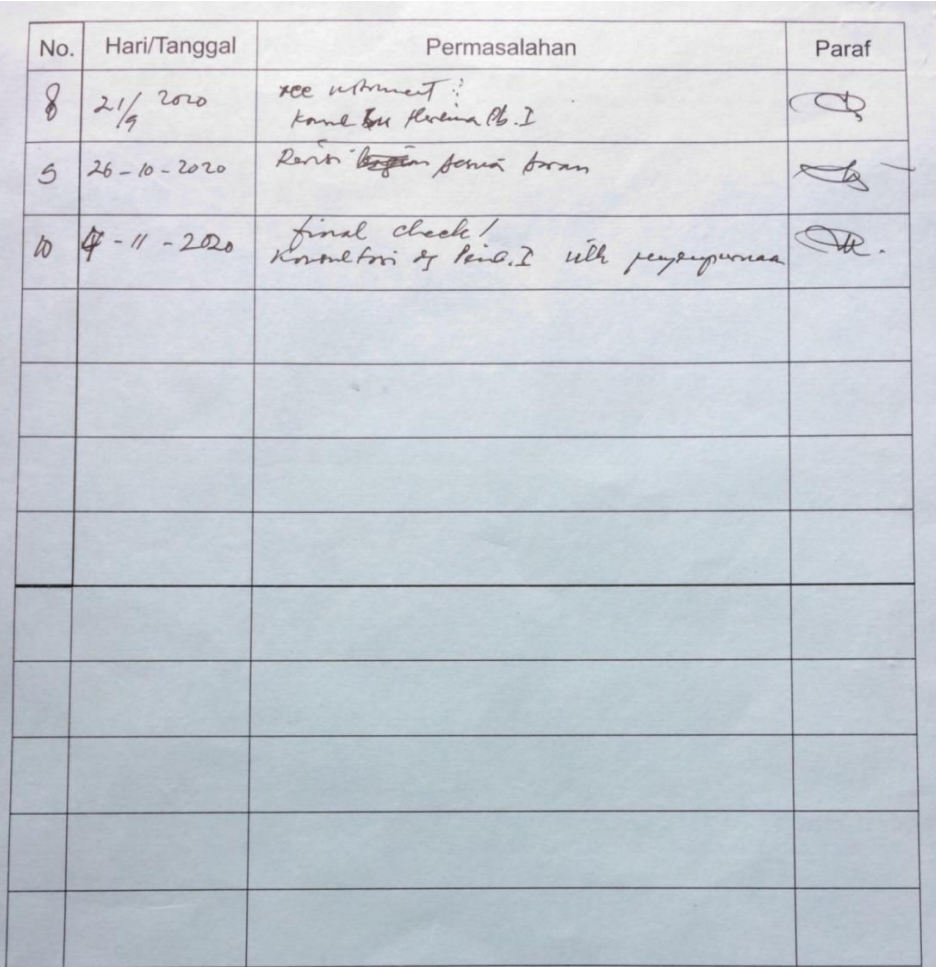 No. Hari/Tanggal Permasalahan Paraf
8 21/9 2020 instrument :
Ibu Pb. I
9 26-10-2020 Revisi sesuai saran
10 4-11-2020 final check /
Konsultasi dg Pemb. I utk penyempurnaan